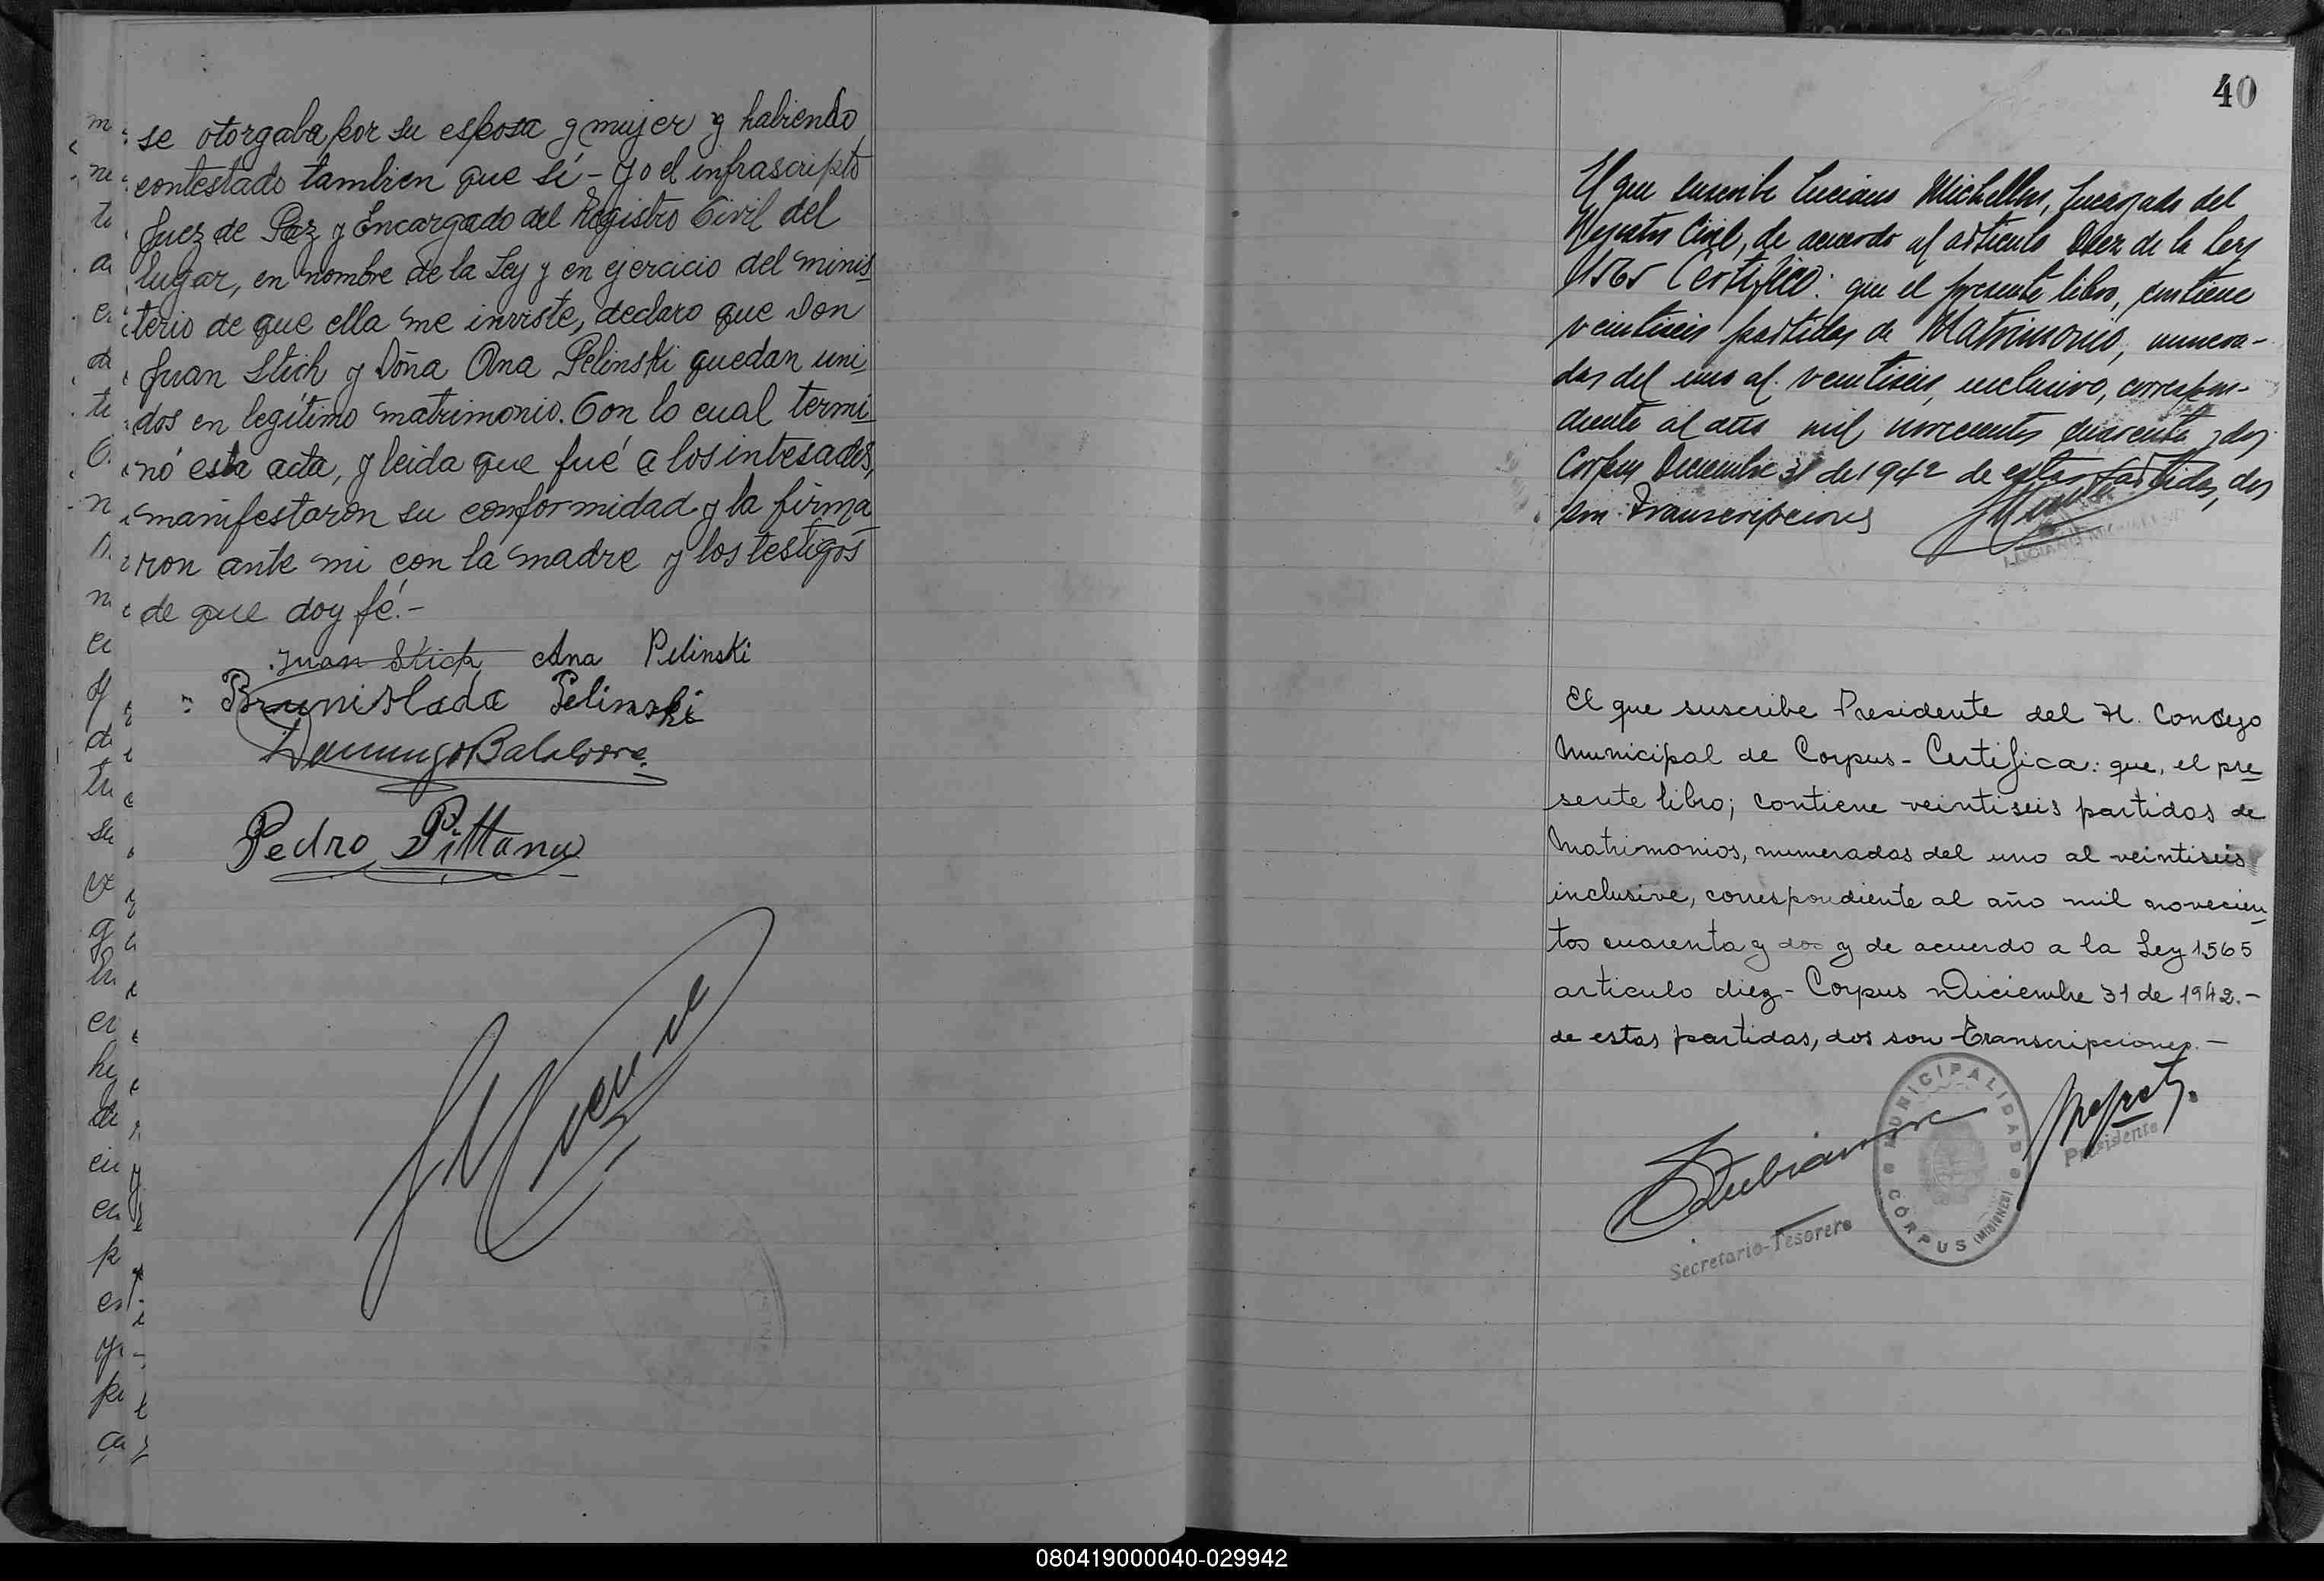 se otorgaba por su esposa y mujer y habiendo
contestado tambien que sí - Yo el infrascripto
Juez de Paz y Encargado del Registro Civil del
lugar, en nombre de la Ley y en ejercicio del minis
terio de que ella me inviste, declaro que Don
Juan Stich y Doña Ana Pelinski quedan uni
dos en legítimo matrimonio. Con lo cual termi
nó esta acta, y leida que fué a los intesados,
manifestaron su conformidad y la firma
ron ante mi con la madre y los testigos
de que doy fé.-
Juan Stich Ana Pelinski
Brunislada Pelinski
Domingo
Pedro Pittana
40
El que suscribe Luciano Encargado del
Registro Civil, de acuerdo al artículo Diez de la Ley
1565 Certifico: que el presente libro, contiene
veintiseis partidas de Matrimonio, numera-
das del uno al veintiseis, inclusivo, correspon-
diente al año mil novecientos cuarenta y dos
Corpus Diciembre 31 de 1942 de estas partidas, dos
son Transcripciones
LUCIANO
El que suscribe Presidente del H. Concejo
Municipal de Corpus - Certifica: que, el pre
sente libro; contiene veintiseis partidas de
Matrimonios, numeradas del uno al veintiseis
inclusive, correspondiente al año mil novecien
tos cuarenta y dos y de acuerdo a la Ley 1565
articulo diez - Corpus Diciembre 31 de 1942.-
de estas partidas, dos son Transcripciones.-
MUNICIPALIDAD
CÓRPUS (MISIONES)
Presidente
Secretario-Tesorero
080419000040-029942